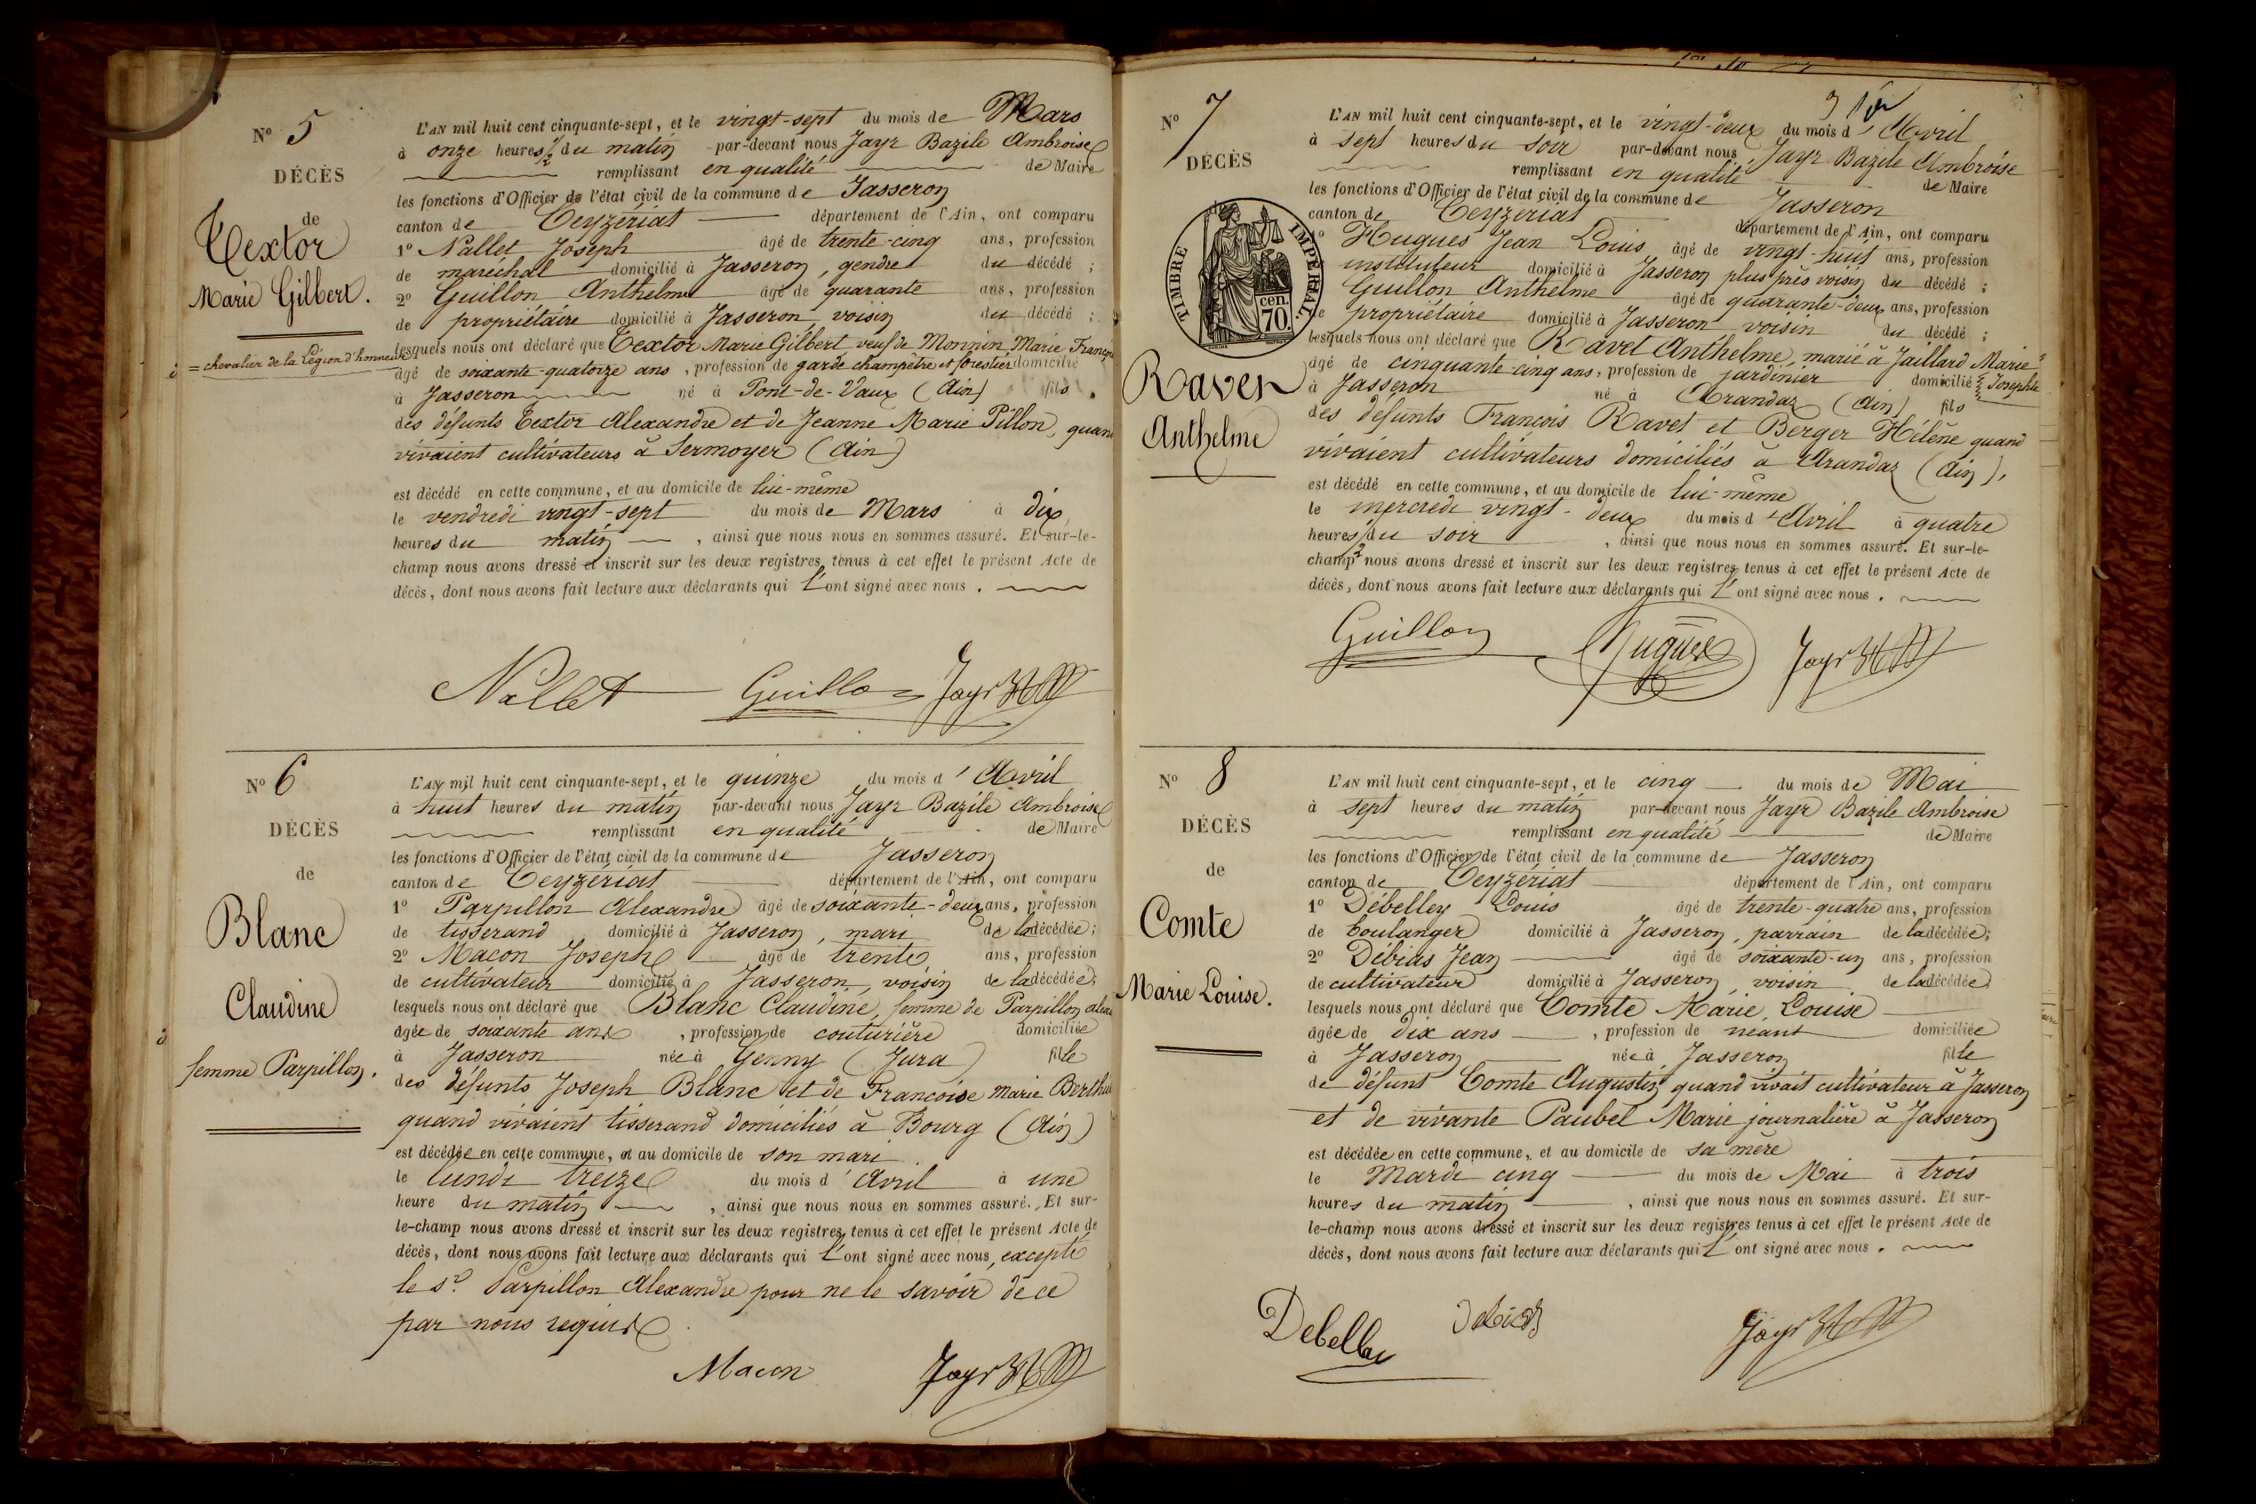 N° 5
DÉCÈS
de
Textor
Marie Gilbert.
= chevalier de la Légion d'honneur
L'AN mil huit cent cinquante-sept, et le vingt-sept du mois de Mars
à onze heures ½ du matin par-devant nous Jayr Bazile Ambroise
remplissant en qualité de Maire
les fonctions d'Officier de l'état civil de la commune de Jasseron
canton de Ceyzériat département de l'Ain, ont comparu
1° Nallet Joseph âgé de trente-cinq ans, profession
de maréchal domicilié à Jasseron, gendre du décédé ;
2° Guillon Anthelme âgé de quarante ans, profession
de propriétaire domicilié à Jasseron voisin du décédé ;
lesquels nous ont déclaré que Textor Marie Gilbert veuf de Monnin Marie Franç
âgé de soixante-quatorze ans, profession de garde champêtre et forestier domicilié
à Jasseron né à Pont-de-Vaux (Ain) fils
des défunts Textor Alexandre et de Jeanne Marie Pillon, quand
vivaient cultivateurs à Sermoyer (Ain)
est décédé en cette commune, et au domicile de lui-même
le vendredi vingt-sept du mois de Mars à dix
heures du matin, ainsi que nous nous en sommes assuré. Et sur-le-
champ nous avons dressé et inscrit sur les deux registres tenus à cet effet le présent Acte de
décès, dont nous avons fait lecture aux déclarants qui l'ont signé avec nous.
Nallet Guillon Jayr
N° 6
DÉCÈS
de
Blanc
Claudine
femme Parpillon.
L'AN mil huit cent cinquante-sept, et le quinze du mois d'Avril
à huit heures du matin par-devant nous Jayr Bazile Ambroise
remplissant en qualité de Maire
les fonctions d'Officier de l'état civil de la commune de Jasseron
canton de Ceyzériat département de l'Ain, ont comparu
1° Parpillon Alexandre âgé de soixante-deux ans, profession
de tisserand domicilié à Jasseron, mari de la décédée ;
2° Macon Joseph âgé de trente ans, profession
de cultivateur domicilié à Jasseron, voisin de la décédée ;
lesquels nous ont déclaré que Blanc Claudine, femme de Parpillon alexa
âgée de soixante ans, profession de couturière domiciliée
à Jasseron née à Genny (Jura) fille
des défunts Joseph Blanc et de Françoise Marie Berthe
quand vivaient tisserand domiciliés à Bourg (Ain)
est décédée en cette commune, et au domicile de son mari
le lundi treize du mois d'Avril à une
heure du matin, ainsi que nous nous en sommes assuré. Et sur-
le-champ nous avons dressé et inscrit sur les deux registres tenus à cet effet le présent Acte de
décès, dont nous avons fait lecture aux déclarants qui l'ont signé avec nous, excepté
le sr. Parpillon Alexandre pour ne le savoir de ce
par nous requis
Macon Jayr
N° 7
DÉCÈS
TIMBRE IMPÉRIAL
70 cen.
Ravet
Anthelme
L'AN mil huit cent cinquante-sept, et le vingt-deux du mois d'Avril
à sept heures du soir par-devant nous Jayr Bazile Ambroise
remplissant en qualité de Maire
les fonctions d'Officier de l'état civil de la commune de Jasseron
canton de Ceyzériat département de l'Ain, ont comparu
1° Hugues Jean Louis âgé de vingt-huit ans, profession
instituteur domicilié à Jasseron plus près voisin du décédé ;
Guillon Anthelme âgé de quarante-deux ans, profession
de propriétaire domicilié à Jasseron voisin du décédé ;
lesquels nous ont déclaré que Ravet Anthelme, marié à Jaillard Marie
Josephte
âgé de cinquante-cinq ans, profession de jardinier domicilié
à Jasseron né à Arandas (Ain) fils
des défunts François Ravet et Berger Hélène quand
vivaient cultivateurs domiciliés à Arandas (Ain),
est décédé en cette commune, et au domicile de lui-même
le mercredi vingt-deux du mois d'Avril à quatre
heures du soir, ainsi que nous nous en sommes assuré. Et sur-le-
champ nous avons dressé et inscrit sur les deux registres tenus à cet effet le présent Acte de
décès, dont nous avons fait lecture aux déclarants qui l'ont signé avec nous.
Guillon Hugues Jayr
N° 8
DÉCÈS
de
Comte
Marie Louise.
L'AN mil huit cent cinquante-sept, et le cinq du mois de Mai
à sept heures du matin par-devant nous Jayr Bazile Ambroise
remplissant en qualité de Maire
les fonctions d'Officier de l'état civil de la commune de Jasseron
canton de Ceyzériat département de l'Ain, ont comparu
1° Débelley Louis âgé de trente-quatre ans, profession
de boulanger domicilié à Jasseron, parrain de la décédée ;
2° Débias Jean âgé de soixante-un ans, profession
de cultivateur domicilié à Jasseron, voisin de la décédée
lesquels nous ont déclaré que Comte Marie Louise
âgée de dix ans, profession de néant domiciliée
à Jasseron née à Jasseron fille
de défunt Comte Augustin quand vivait cultivateur à Jasseron
et de vivante Paubel Marie journalière à Jasseron
est décédée en cette commune, et au domicile de sa mère
le Mardi cinq du mois de Mai à trois
heures du matin, ainsi que nous nous en sommes assuré. Et sur-
le-champ nous avons dressé et inscrit sur les deux registres tenus à cet effet le présent Acte de
décès, dont nous avons fait lecture aux déclarants qui l'ont signé avec nous.
Debelley Debias Jayr